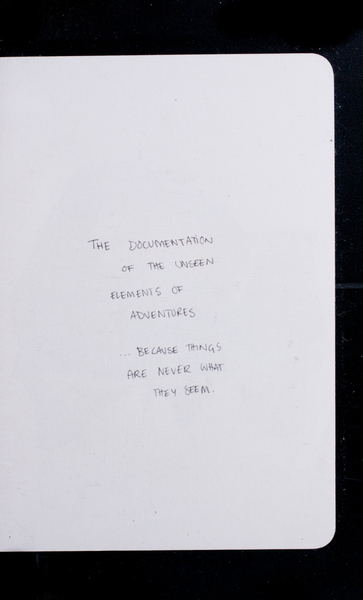 THE DOCUMENTATION
OF THE UNSEEN
ELEMENTS OF
ADVENTURES
... BECAUSE THINGS
ARE NEVER WHAT
THEY SEEM.